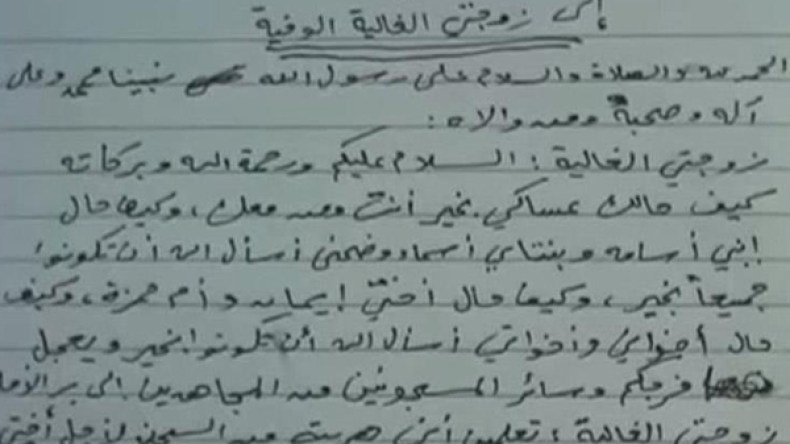 إلى زوجتي الغالية الوفية
الحمد لله والصلاة والسلام على رسول الله نبينا محمد وعلى
آله وصحبة ومن والاه :
زوجتي الغالية : السلام عليكم ورحمة الله وبركاته
كيف حالك عساكي بخير أنت ومن معك ، وكيف حال
إبني أسامه وبنتاي أسماء وضحى أسأل الله أن تكونوا
جميعاً بخير ، وكيف حال أختي إيمان وأم حمزة ، وكيف
حال أخواي وأخواتي أسأل الله أن تكونوا بخير ويعجل
فرجكم وسائر المسجونين من المجاهدين إلى بر الأما
زوجتي الغالية : تعلمين أني هربت من السجن لأجل أختي